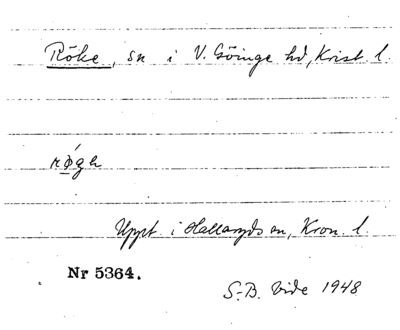 Röke, sn i V. Göinge hd, Krist. l.
røgə
Uppt. i Hallaryds sn, Kron. l.
Nr 5364.
S-B. Vide 1948